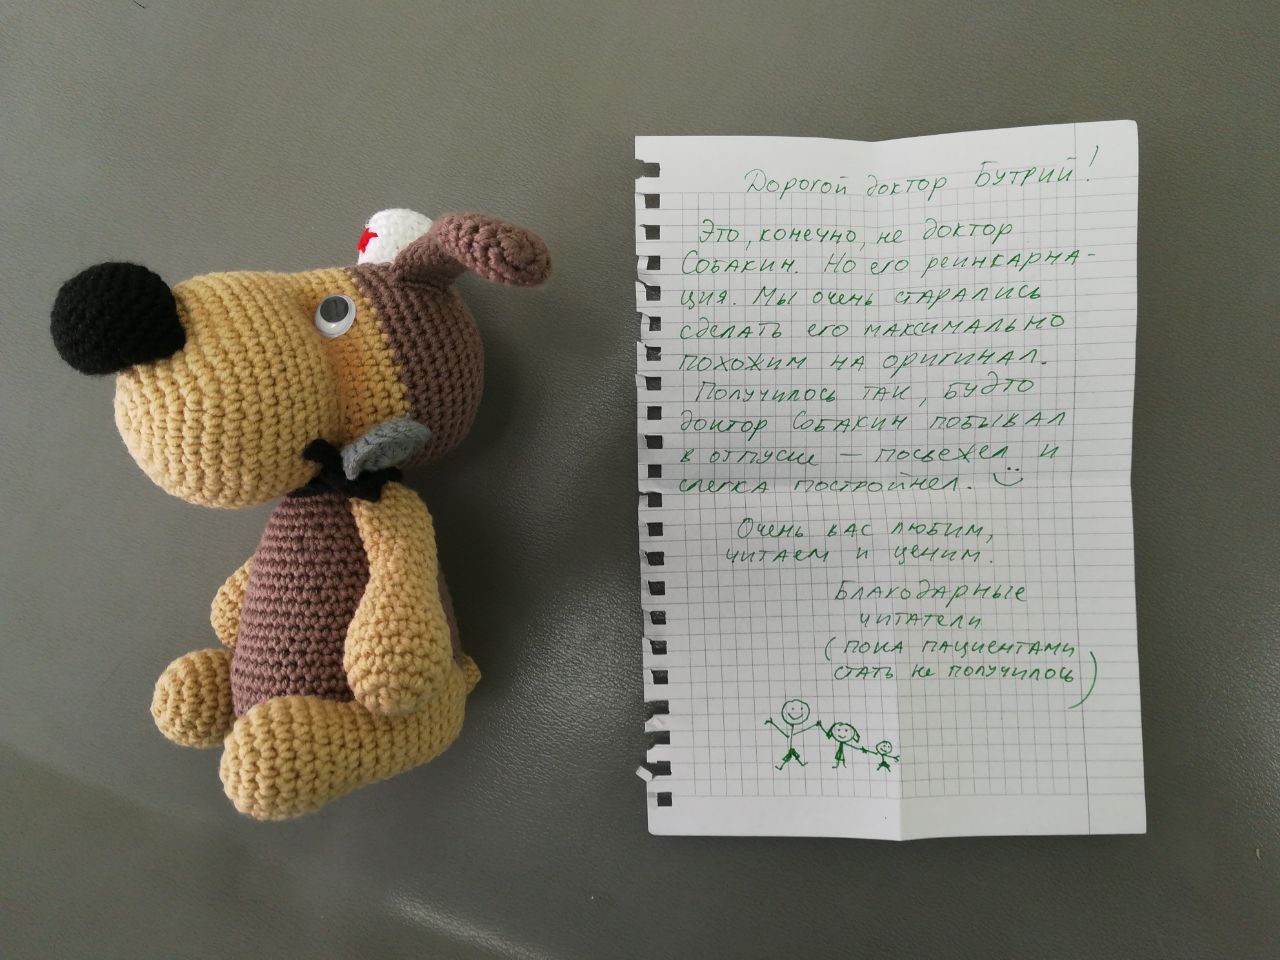 Дорогой доктор Бутрий!
Это, конечно, не доктор
Собакин. Но его реинкарна-
ция. Мы очень старались
сделать его максимально
похожим на оригинал.
Получилось так, будто
доктор Собакин побывал
в отпуске — посвежел и
слегка постройнел.
Очень вас любим,
читаем и ценим.
Благодарные
читатели
(пока пациентами
стать не получилось)